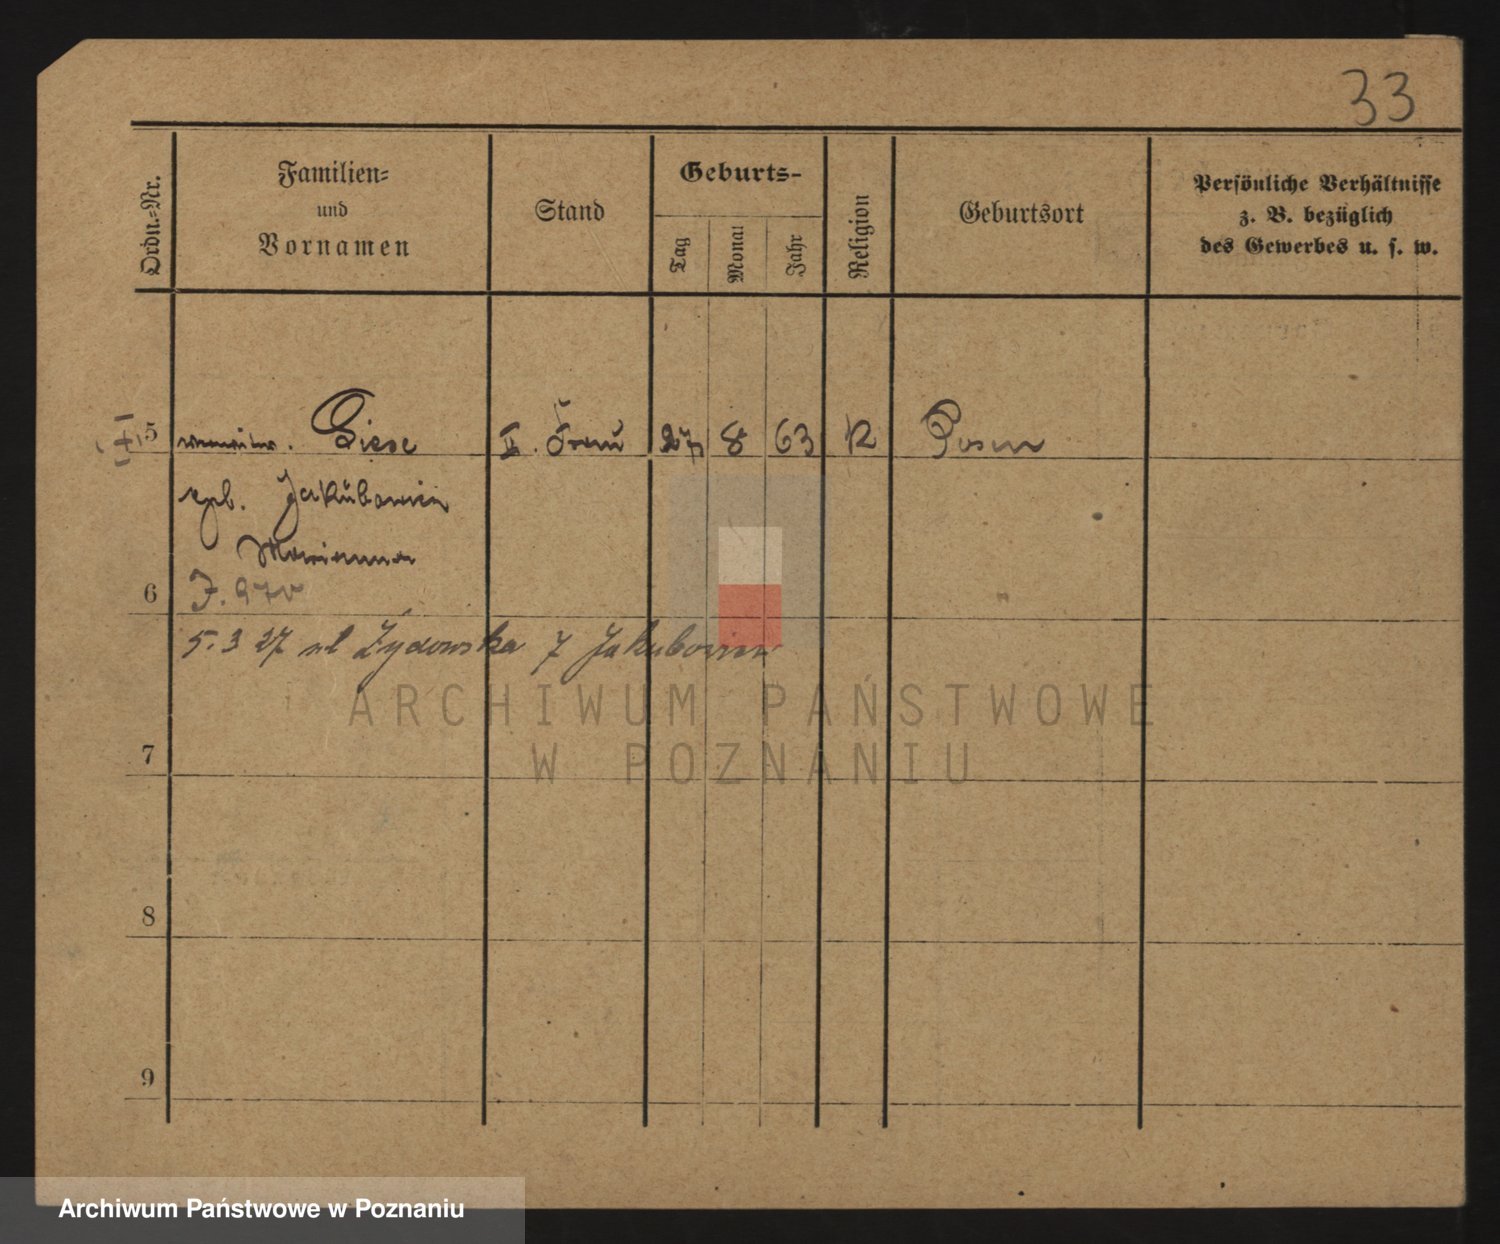 33
Ordn.-Nr.
Familien-
und
Vornamen
Stand
Geburts-
Tag
Monat
Jahr
Religion
Geburtsort
Persönliche Verhältnisse
z. B. bezüglich
des Gewerbes u. s. w.
5 Giese II. Frau 27 8 63 K Posen
geb. Jakubowicz
Marianna
6
5.3 27 ul Żydowska 7 Jakubowicz
7
8
9
ARCHIWUM PAŃSTWOWE
W POZNANIU
Archiwum Państwowe w Poznaniu